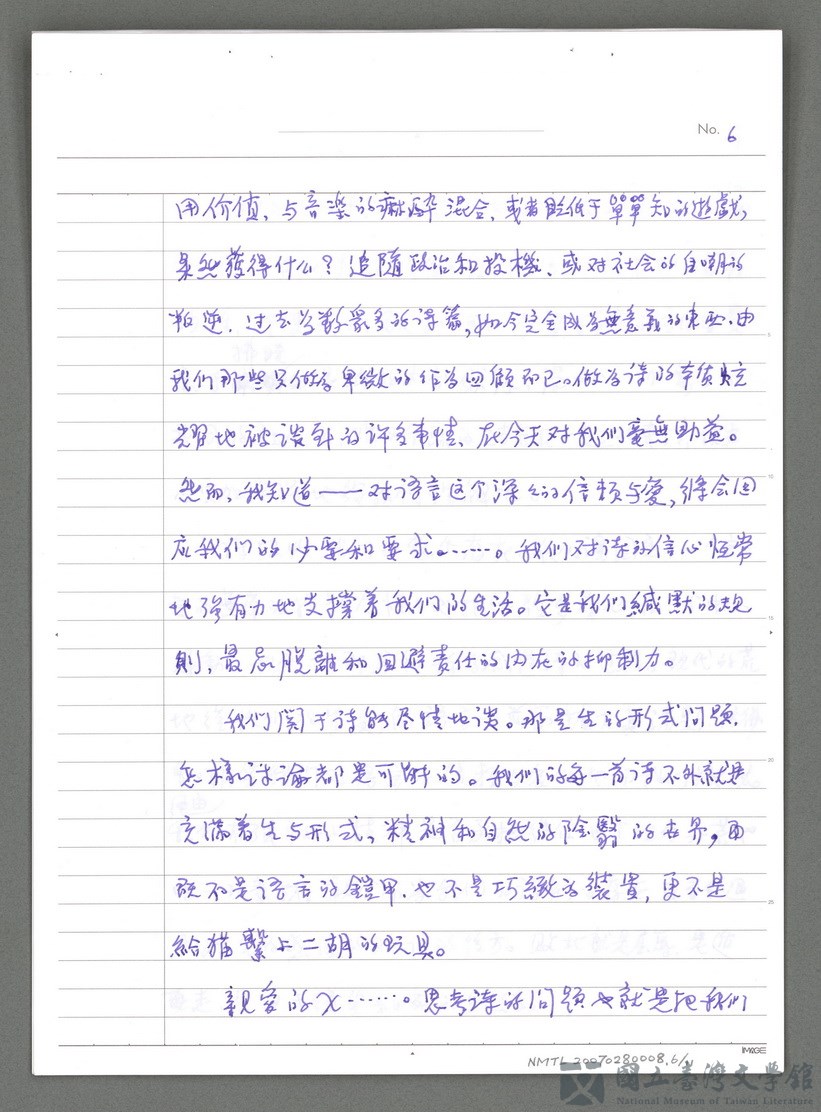 No. 6
用价值，与音樂的痲醉混合，或者貶低于單單知的遊戲，
果然獲得什么？追隨政治和投機、或对社会的自嘲的
叛逆．过去当数眾多的诗篇，如今完全成为無意義的東西．由
我们那些只做为卑微的作为回顧而已。做为诗的本質炫
耀地被谈到的许多事情、在今天对我们毫無助益。
然而，我知道——对语言这个深々的信頼与爱，總会回
应我们的必要和要求……。我们对诗的信心恆常
地强有力地支撑着我们的生活。它是我们緘默的規
則，最忌脱離和回避責任的内在的抑制力。
我们関于诗能尽情地谈。那是生的形式问题．
怎様讨論都是可能的。我们的每一首诗不外就是
充滿着生与形式，精神和自然的陰翳的世界，而
既不是语言的鎧甲．也不是巧緻的裝置，更不是
給猫繫上二胡的玩具。
親爱的X……。思考诗的问题也就是把我们
IMAGE
NMTL 20070280008.6/
國立臺灣文學館
National Museum of Taiwan Literature